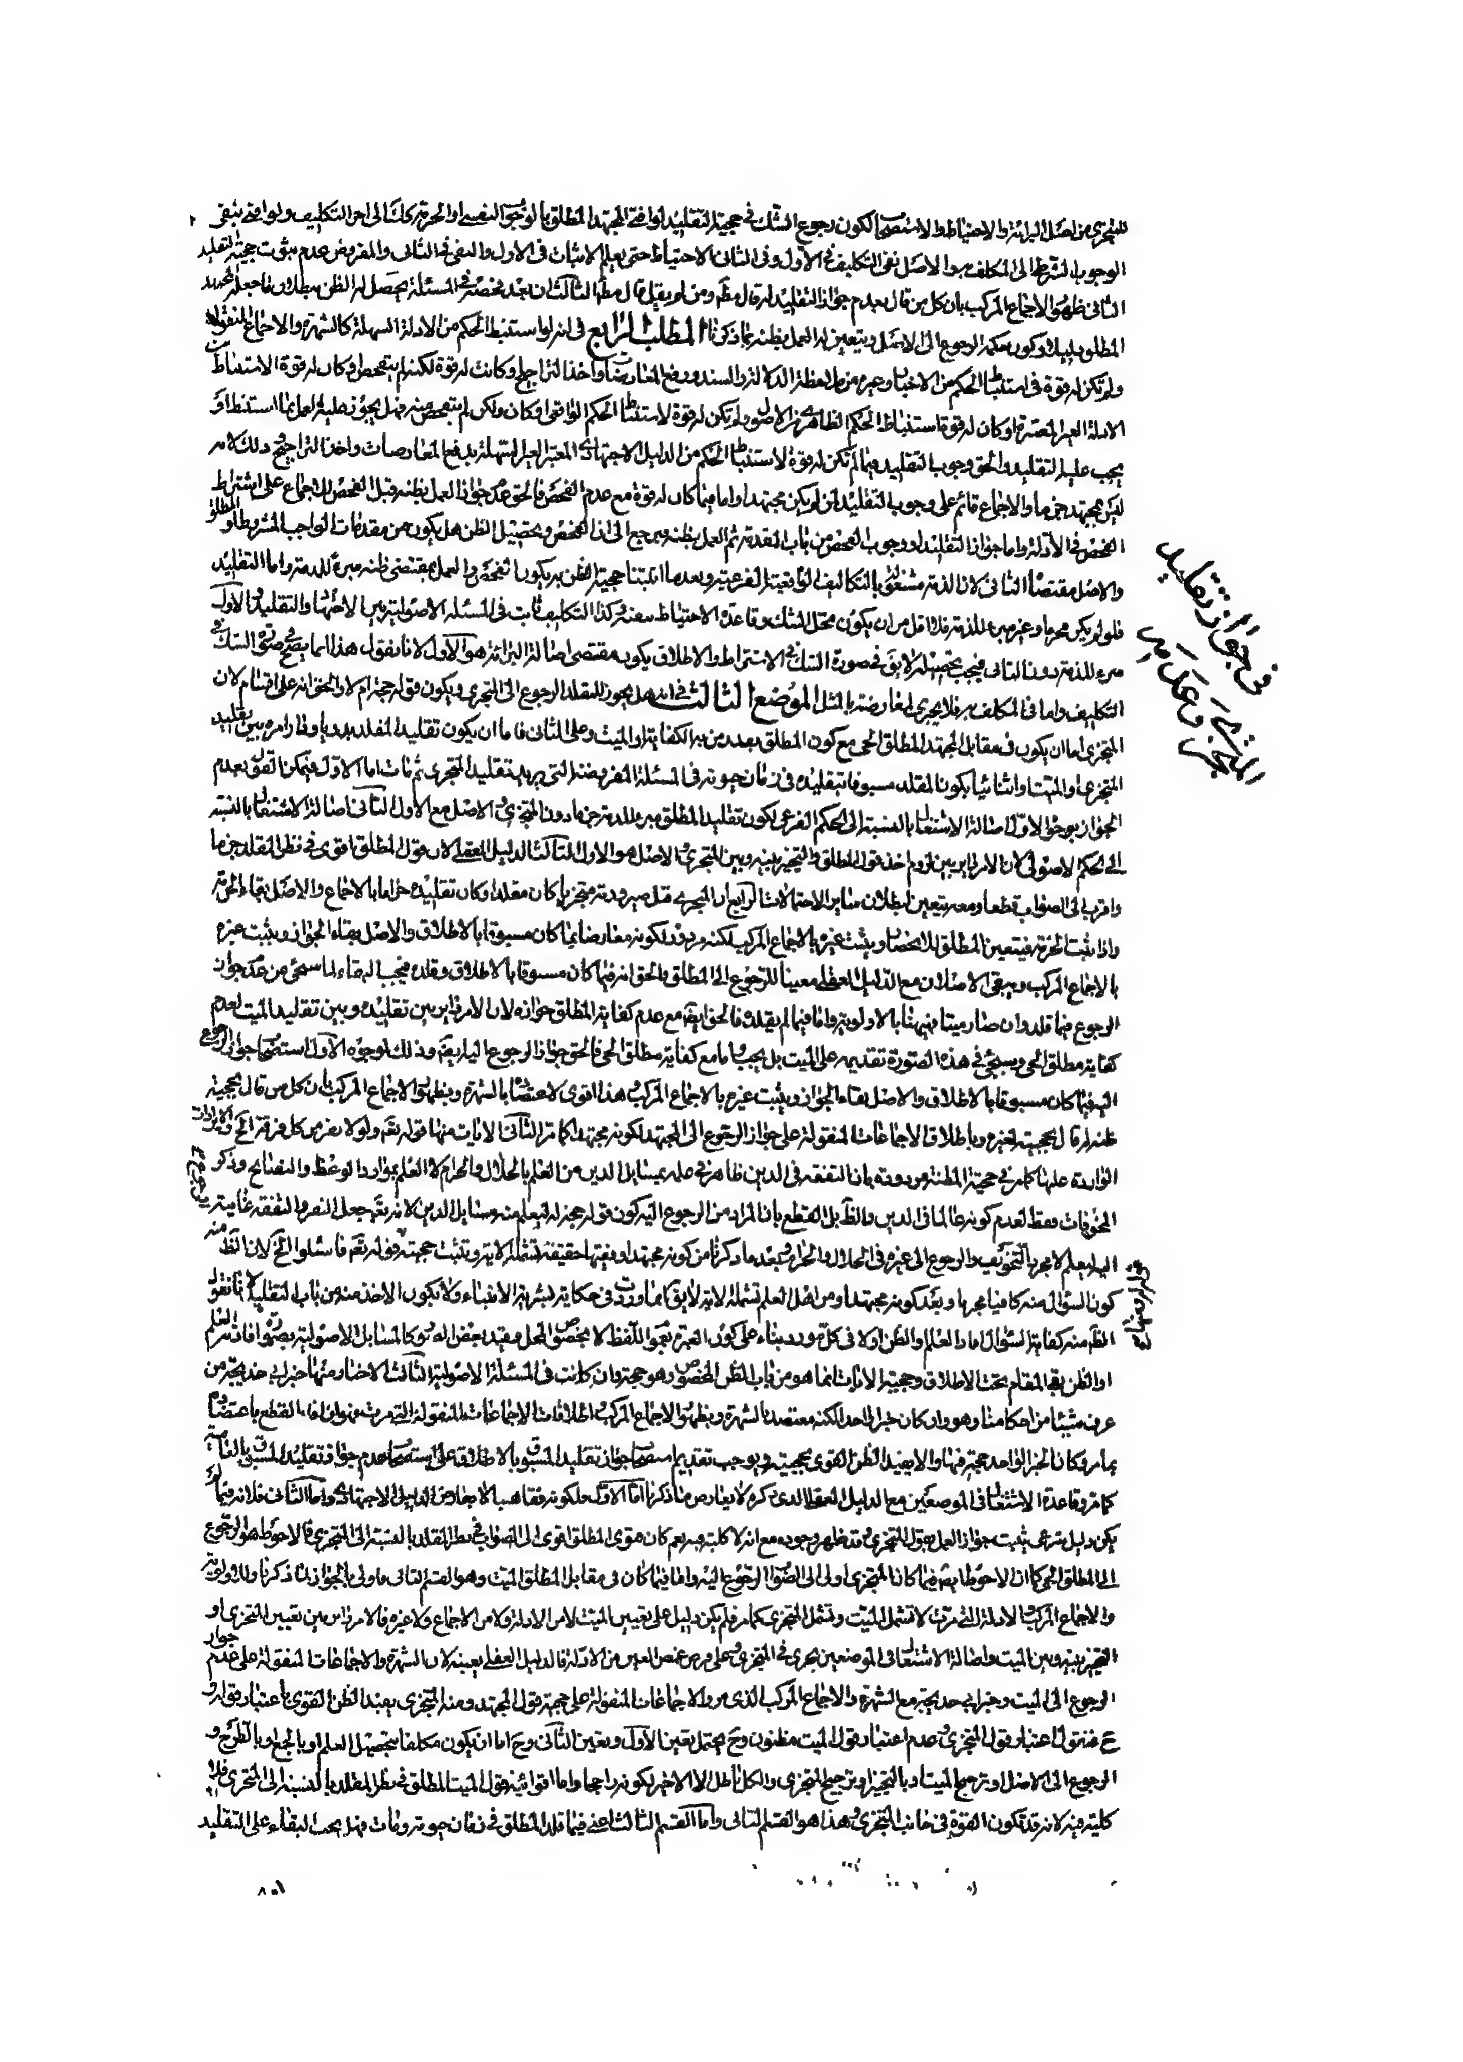 للمتجزى من اصل البرائة والاحتياط والاستصحاب لكون رجوع الشك فى حجية التقليد لو افتى المجتهد المطلق بالوجوب النفسى او الحرمة الى اخر التكليف ولو افتى بنفى
الوجوب الشرط الى المكلف به والاصل نفى التكليف فى الاول وفى الثانى الاحتياط حتى يعلم الاثبات فى الاول والنفى فى الثانى والمفروض عدم ثبوت حجية التقليد
الثانى ظهور الاجماع المركب بان كل من قال بعدم جواز التقليد له قال ومن لم يقل قال الثالث ان بعد فحصه فى المسئلة يحصل له الظن ببطلان ما جعله المجتهد
المطلوب دليلا وكون حكمه الرجوع الى الاصل ويتعين له العمل بظنه بما ذكرنا المطلب الرابع فى انه لو استنبط الحكم من الادلة السهلة كالشهرة والاجماع المنقول
ولم تكن له قوة فى استنباط الحكم من الاخبار وغيره من ملاحظة الدلالة والسند ورفع المعارضات واخذ التراجيح او كانت له قوة لكنه لم يتفحص او كان له قوة الاستنباط
الادلة الغير المعتبرة او كان له قوة استنباط الحكم الظاهرى من الاصول ولم تكن له قوة لاستنباط الحكم الواقعى او كان ولكن لم يتفحص عنه فهل يجوز عليه العمل بما استنبط او
يجب عليه التقليد والحق وجوب التقليد فيما لم تكن له قوة لاستنباط الحكم من الدليل الاجتهادى المعتبر الغير السهلة بدفع المعارضات واخذ التراجيح وذلك لانه
ليس بمجتهد جزما والاجماع قائم على وجوب التقليد لمن لم يكن مجتهدا واما فيما كان له قوة مع عدم الفحص فالحق عدم جواز العمل بظنه قبل الفحص للاجماع على اشتراط
الفحص فى الادلة واما جواز التقليد او وجوب الفحص من باب المقدمة ثم العمل بظنه يرجع الى ان الفحص وتحصيل الظن هل يكون من مقدمات الواجب المشروط او المطلق
والاصل مقتضاه الثانى لان الذمة مشغولة بالتكاليف الواقعية الفرعية وبعد ما اثبتنا حجية الظن به يكون الفحص والعمل بمقتضى ظنه مبرء للذمة واما التقليد
فلو لم يكن محرما وغير مبرء للذمة فلا اقل من ان يكون محل الشك وقاعدة الاحتياط وكذا التكليف ثابت فى المسئلة الاصولية بين الاجتهاد والتقليد والاول
مبرء للذمة دون الثانى فيجب تحصيله لا يق فى صورة الشك فى الاشتراط والاطلاق يكون مقتضى اصالة البرائة هو الاول لانا نقول هذا انما يصح فى صورة الشك فى
التكليف واما فى المكلف به فلا يجرى لمعارضته بالمثل الموضع الثالث فى انه هل يجوز للمقلد الرجوع الى المتجزى ويكون قوله حجة ام لا والحق انه على اقسام لان
المتجزى اما ان يكون فى مقابل المجتهد المطلق الحى مع كون المطلق بعدد من به الكفاية او الميت وعلى الثانى فاما ان يكون تقليد المقلد بدويا وظ امره بين تقليد
المتجزى او الميت او استثنائيا بكون المقلد مسبوقا بتقليده فى زمان حيوته فى المسئلة المفروضة التى يريد تقليد المتجزى ثم مات اما الاول فيمكن القول بعدم
الجواز بوجوه الاول اصالة الاشتغال بالنسبة الى الحكم الفرعى لكون تقليد المطلق مبرء للذمة جزما دون المتجزى والاصل مع الاول الثانى اصالة الاشتغال بالنسبة
الى الحكم الاصولى لان الامر دائر بين لزوم اخذ قول المطلق والتخيير بينه وبين المتجزى والاصل هو الاول الثالث الدليل العقلى لان قول المطلق اقوى فى نظر المقلد جزما
واقرب الى الصواب قطعا ومعه يتعين لبطلان سائر الاحتمالات الرابع ان المتجزى قبل صيرورته متجزيا كان مقلدا وكان تقليده حراما بالاجماع والاصل بقاء الحرمة
واذا ثبت الحرمة فيتعين المطلق للانحصار ويثبت غيره بالاجماع المركب لكنه مردود لكونه معارضا بما كان مسبوقا بالاطلاق والاصل بقاء الجواز ويثبت غيره
بالاجماع المركب ويبقى الاصلان مع الدليل العقلى معينا للرجوع الى المطلق والحق انه فيما كان مسبوقا بالاطلاق وقلده فيجب البقاء لما سيجئ من عدم جواز
الرجوع فيما قلد وان صار ميتا فهيهنا بالاولوية واما فيما لم يقلده فالحق ايضا مع عدم كفاية المطلق جوازه لان الامر دائر بين تقليده وبين تقليد الميت لعدم
كفاية مطلق الحى وسيجئ فى هذه الصورة تقديمه على الميت بل يجب واما مع كفاية مطلق الحى فالحق جواز الرجوع اليه ايضا وذلك لوجوه الاول استصحاب جواز الرجوع
اليه فيما كان مسبوقا بالاطلاق والاصل بقاء الجواز ويثبت غيره بالاجماع المركب وهذا اقوى لاعتضاده بالشهرة وبظهور الاجماع المركب بان كل من قال بحجية
ظنه له قال بحجيته لغيره وباطلاق الاجماعات المنقولة على جواز الرجوع الى المجتهد لكونه مجتهدا كما مر الثانى الايات منها قوله تعالى ولولا نفر من كل فرقة الخ والايرادات
الواردة عليها كما مر فى حجية المظنة مردودة بان التفقه فى الدين ظاهر فى علمه بمسايل الدين من العلم بالحلال والحرام لا العلم بموارد الوعظ والنصايح وذكر
المخوفات فقط لعدم كونه عالما فى الدين والظ بل القطع بان المراد من الرجوع اليه كون قوله حجة له ليعلم منه مسايل الدين لانه تعالى جعل النفر والتفقه غاية
اليه ليعلم لا مجرد التخويف والرجوع الى غيره فى الحلال والحرام وبعد ما ذكرنا من كونه مجتهدا وفقيها حقيقة تشمله الاية وتثبت حجيته وقوله تعالى فاسئلوا الخ لان الظ منه
كون السؤال منه كافيا مجزيا وبعد كونه مجتهدا ومن اهل العلم تشمله الاية لا يق انما وردت فى حكاية بشرية الانبياء ولا يكون الاخذ منه من باب التقليد لانا نقول
الظ منه كفاية السؤال افاد العلم والظن اولا فى كل مورد بناء على كون العبرة بعموم اللفظ لا بخصوص المحل وكالمسايل الاصولية بصورة افادته العلم
او الظن بقى المقام تحت الاطلاق وحجية الايات انما هو من باب الظن المخصوص وهو حجة وان كانت فى المسئلة الاصولية الثالث الاخبار ومنها خبر ابى خديجة من
عرف شيئا من احكامنا وهو وان كان خبرا واحدا لكنه معتضد بالشهرة وبظهور الاجماع المركب واطلاقات الاجماعات المنقولة التى مرت
بما مر وكان الخبر الواحد حجة فبها والا يفيد الظن القوى بحجيته ويوجب تقديم استصحاب جواز تقليد المسبوق بالاطلاق على استصحاب عدم جواز تقليد المسبوق بالعامية
كما مر وقاعدة الاشتغال فى الموضعين مع الدليل العقلى الذى ذكره لا يعارض ما ذكرنا اما الاول فلكونه فقاهيا لا يعارض الدليل الاجتهادى واما الثانى فلانه فيما لم
يكن دليل شرعى يثبت جواز العمل بقول المتجزى وقد ظهر وجوده مع انه لا كلية فيه نعم كان فتوى المطلق اقوى الى الصواب فى نظر المقلد بالنسبة الى المتجزى فالاحوط هو الرجوع
الى المطلق الحى كما ان الاحوط ايضا فيما كان المتجزى اولى الى الصواب الرجوع اليه واما فيما كان فى مقابل المطلق الميت وهو القسم الثانى فاولى بالجواز لما ذكرنا وللاولوية
والاجماع المركب والادلة التى مرت لا تشمل الميت وتشمل المتجزى كما مر فلم يكن دليل على تعيين الميت لا من الادلة ولا من الاجماع ولا غيره فالامر دائر بين تعيين المتجزى او
التخيير بينه وبين الميت واصالة الاشتغال فى الموضعين يجرى فى المتجزى وعلى فرض غمض العين من الادلة فالدليل العقلى يعينه لان الشهرة والاجماعات المنقولة على عدم جواز
الرجوع الى الميت وخبر ابى خديجة مع الشهرة والاجماع المركب الذى مر والاجماعات المنقولة على حجية قول المجتهد ومنه المتجزى يفيد الظن القوى باعتبار قوله و
ح فنقول اعتبار قول المتجزى وعدم اعتبار قول الميت مظنون وح يحتمل تعين الاول وتعين الثانى وح اما ان يكون مكلفا بتحصيل العلم او بالجمع او بالطرح و
الرجوع الى الاصل او ترجيح الميت او بالتخيير او ترجيح المتجزى والكل باطل الا الاخير لكونه راجحا واما اقوائية قول الميت المطلق فى نظر المقلد بالنسبة الى المتجزى فلا
كلية فيه لانه قد تكون القوة فى جانب المتجزى وهذا هو القسم الثانى واما القسم الثالث اعنى فيما قلد المطلق فى زمان حيوته ومات فهل يجب البقاء على التقليد
فى جواز تقليد
المتجزى وعدمه